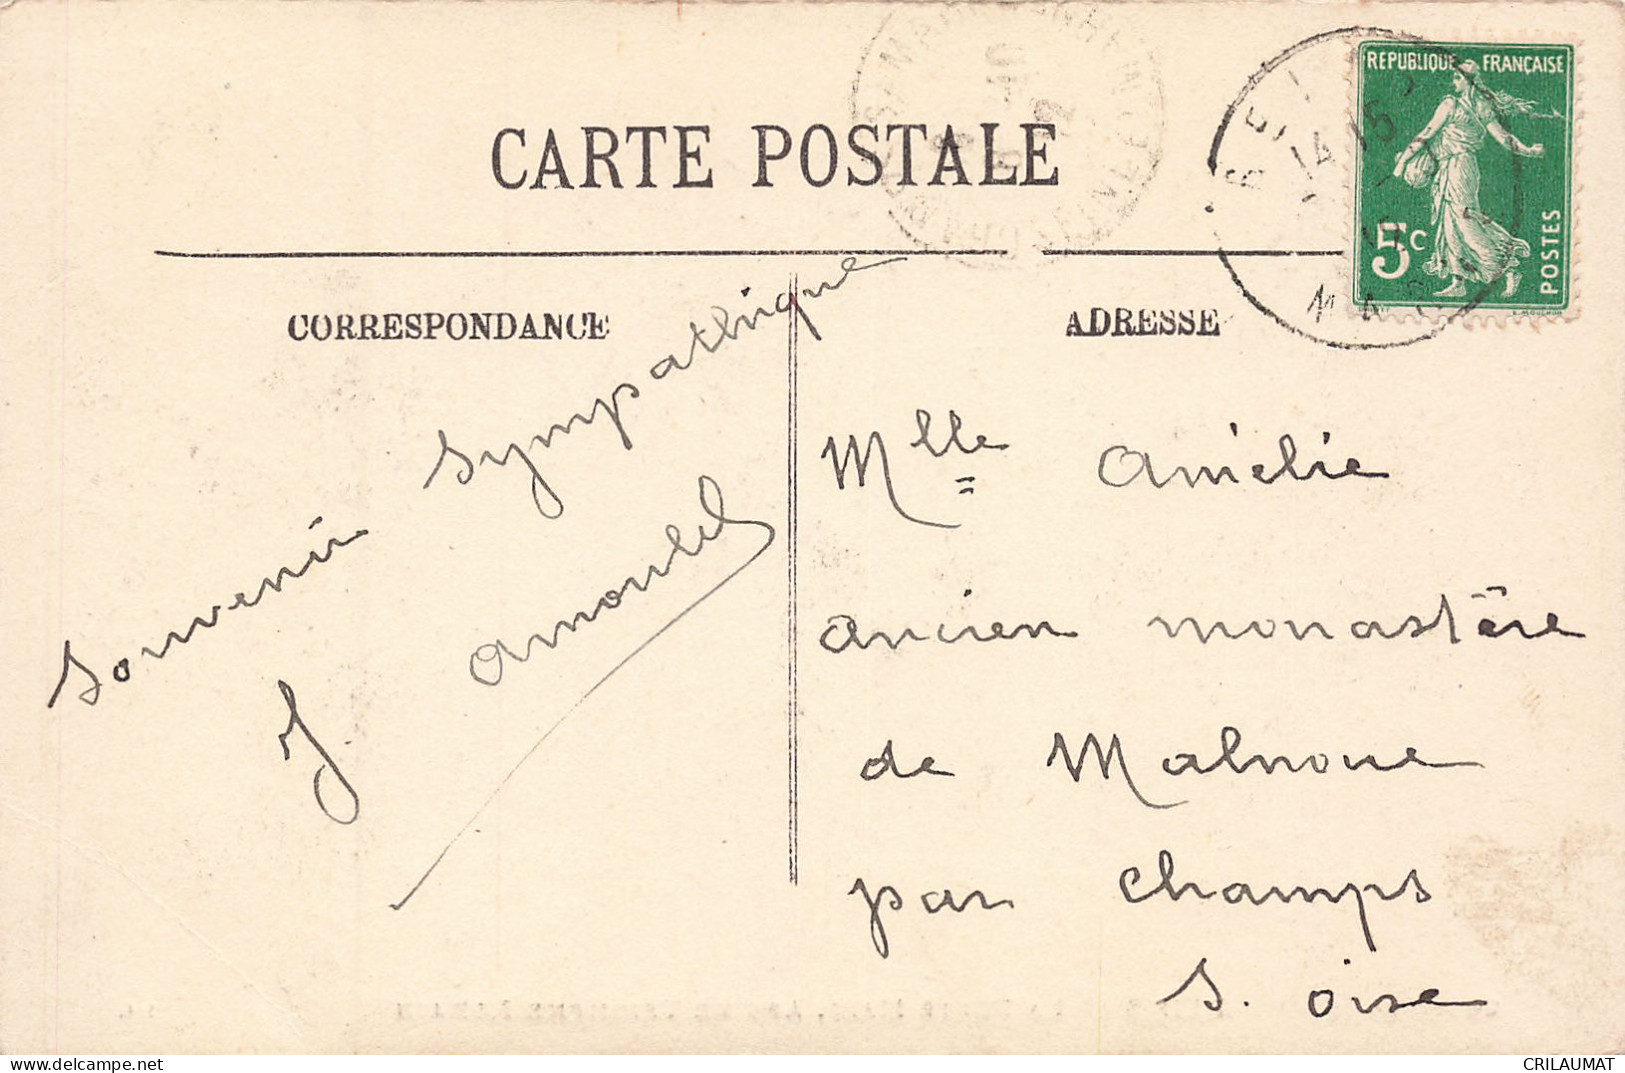 CARTE POSTALE
REPUBLIQUE FRANÇAISE
5c
POSTES
CORRESPONDANCE
ADRESSE
Souvenir sympathique
J. Arnould
Mlle Amélie
ancien monastère
de Malnoue
par Champs
S. Oise
REIMS
MARNE
14 15
https://www.delcampe.net
CRILAUMAT